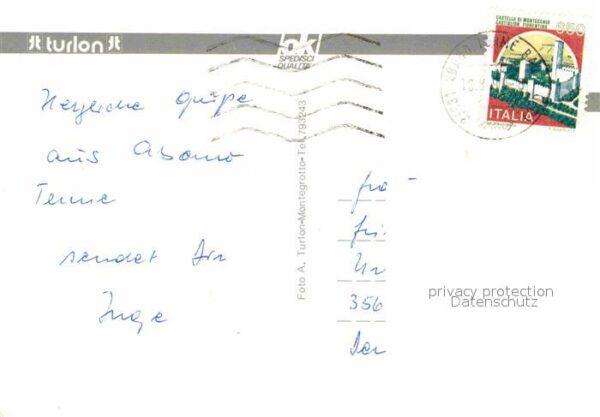 turlon
ok
SPEDISCI
QUALITÀ
CASTELLO DI MONTECCHIO
CASTIGLION FIORENTINO
650
ITALIA
Herzliche Grüße
aus Abano
Terme
sendet Dir
Inge
Foto A. Turlon-Montegrotto-Tel. 793243
356
privacy protection
Datenschutz